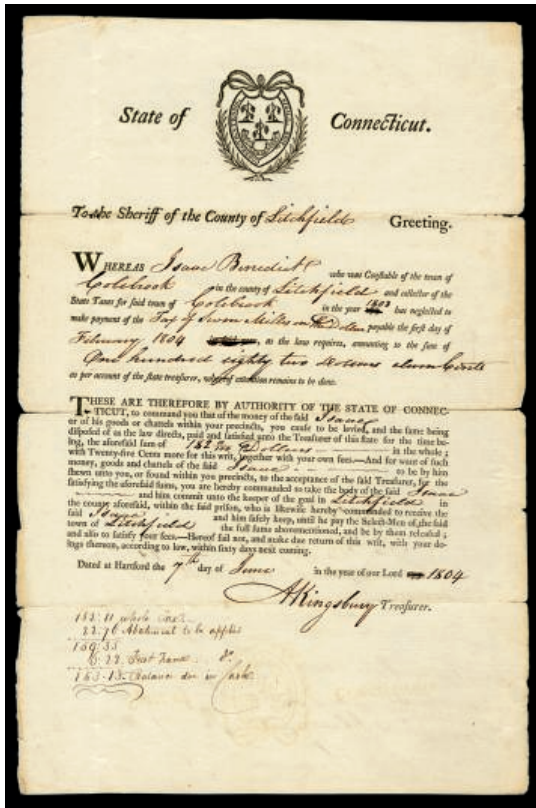 State of Connecticut.
To the Sheriff of the County of Litchfield Greeting.
WHEREAS Isaac Benedict who was Constable of the town of
Colebrook in the county of Litchfield and collector of the
State Taxes for said town of Colebrook in the year 1803 has neglected to
make payment of the Tax of Seven Mills on the Dollar payable the first day of
February 1804 as the law requires, amounting to the sum of
One hundred eighty two Dollars eleven Cents
as per account of the state treasurer, remains to be done.
THESE ARE THEREFORE BY AUTHORITY OF THE STATE OF CONNEC-
TICUT, to command you that of the money of the said Isaac
or of his goods or chattels within your precincts, you cause to be levied, and the same being
disposed of as the law directs, paid and satisfied unto the Treasurer of this state for the time be-
ing, the aforesaid sum of 182 Dollars in the whole;
with Twenty-five Cents more for this writ, together with your own fees.—And for want of such
money, goods and chattels of the said Isaac to be by him
shewn unto you, or found within your precincts, to the acceptance of the said Treasurer, for the
satisfying the aforesaid sums, you are hereby commanded to take the body of the said Isaac
and him commit unto the keeper of the goal in Litchfield in
the county aforesaid, within the said prison, who is likewise hereby commanded to receive the
said Isaac and him safely keep, until he pay the Select-Men of the said
town of Litchfield the full sums abovementioned, and be by them released;
and also to satisfy your fees.—Hereof fail not, and make due return of this writ, with your do-
ings thereon, according to law, within sixty days next coming.
Dated at Hartford the 7th day of June in the year of our Lord 1804
AKingsbury Treasurer.
182.11 whole
22.76 Abatement to be applied
159.35
Do.
Balance due in Cash